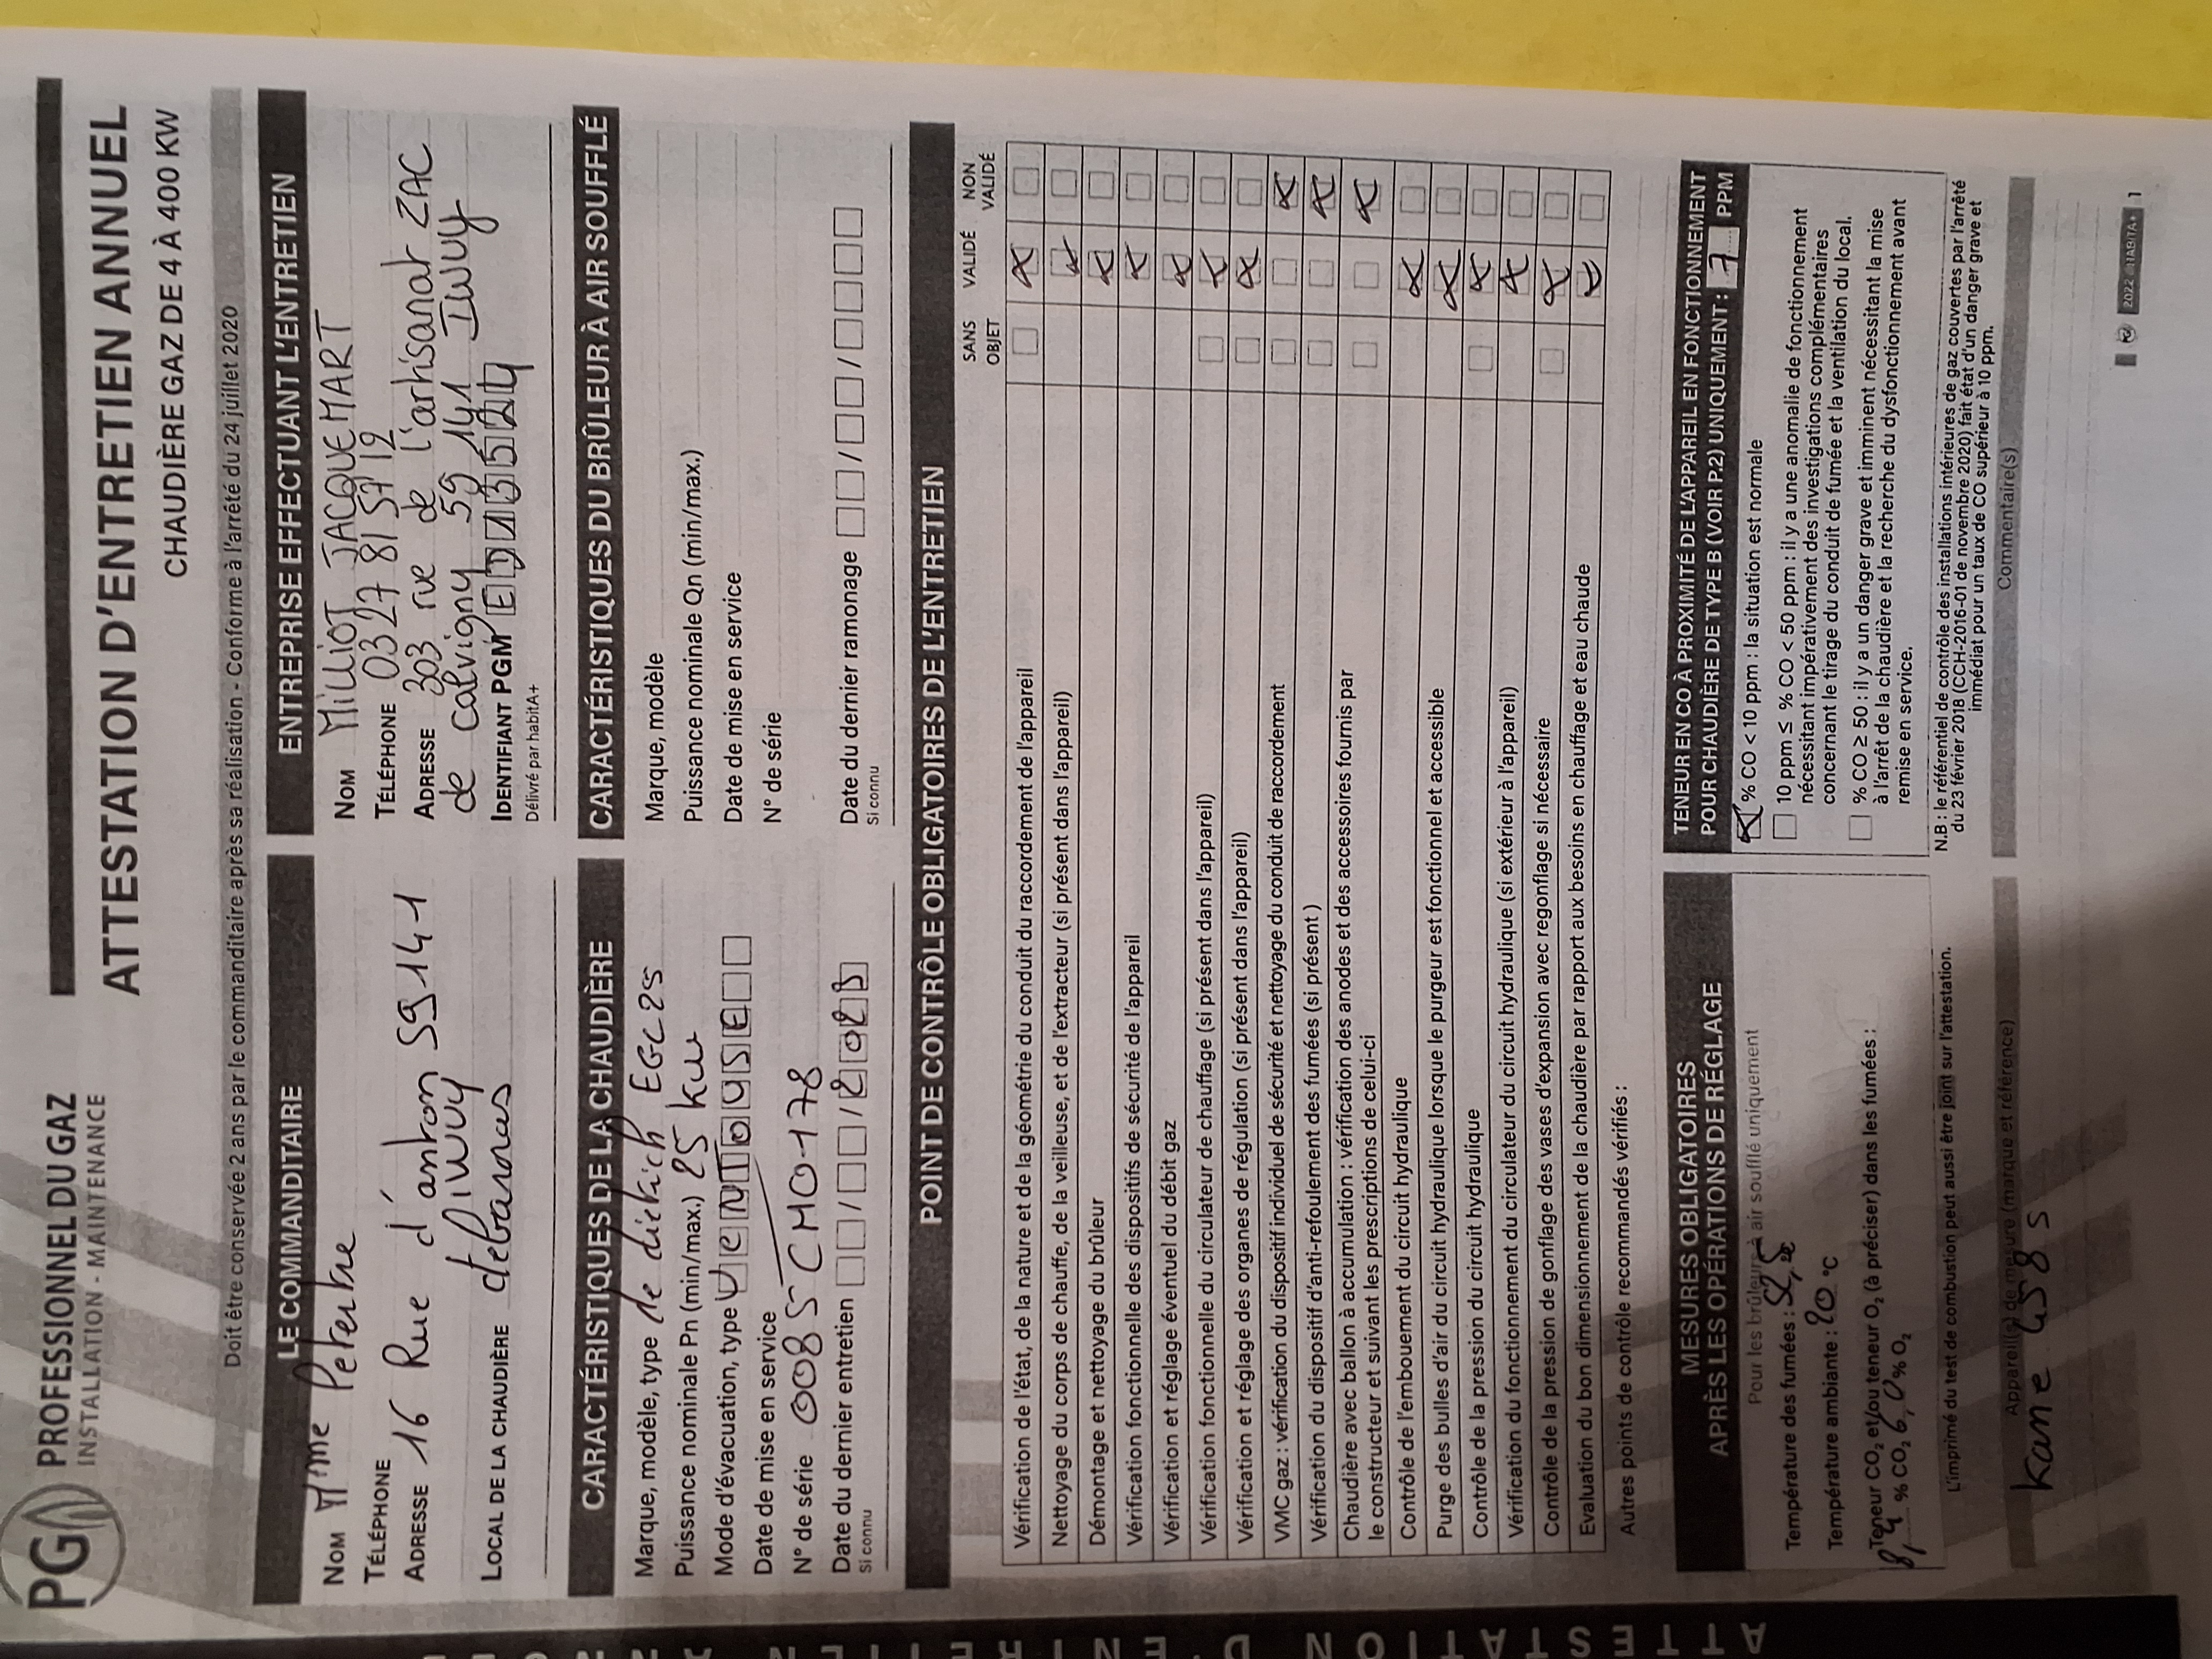 PG PROFESSIONNEL DU GAZ
INSTALLATION - MAINTENANCE
ATTESTATION D'ENTRETIEN ANNUEL
CHAUDIÈRE GAZ DE 4 À 400 KW
Doit être conservée 2 ans par le commanditaire après sa réalisation - Conforme à l'arrêté du 24 juillet 2020
LE COMMANDITAIRE
NOM Mme
TÉLÉPHONE
ADRESSE 16 Rue d'anton 59141
iwuy
LOCAL DE LA CHAUDIÈRE debarras
ENTREPRISE EFFECTUANT L'ENTRETIEN
NOM MILLIOT JACQUEMART
TÉLÉPHONE 03 27 81 57 12
ADRESSE 303 rue de l'artisanat ZAC
de calvigny 59 141 IWUY
IDENTIFIANT PGM
Délivré par habitA+
CARACTÉRISTIQUES DE LA CHAUDIÈRE
Marque, modèle, type de dietich EGC25
Puissance nominale Pn (min/max.) 25 kw
Mode d'évacuation, type VENTOUSE
Date de mise en service
N° de série 0085CM0178
Date du dernier entretien / / 2023
Si connu
CARACTÉRISTIQUES DU BRÛLEUR À AIR SOUFFLÉ
Marque, modèle
Puissance nominale Qn (min/max.)
Date de mise en service
N° de série
Date du dernier ramonage / /
Si connu
POINT DE CONTRÔLE OBLIGATOIRES DE L'ENTRETIEN
SANS OBJET VALIDÉ NON VALIDÉ
Vérification de l'état, de la nature et de la géométrie du conduit du raccordement de l'appareil
Nettoyage du corps de chauffe, de la veilleuse, et de l'extracteur (si présent dans l'appareil)
Démontage et nettoyage du brûleur
Vérification fonctionnelle des dispositifs de sécurité de l'appareil
Vérification et réglage éventuel du débit gaz
Vérification fonctionnelle du circulateur de chauffage (si présent dans l'appareil)
Vérification et réglage des organes de régulation (si présent dans l'appareil)
VMC gaz : vérification du dispositif individuel de sécurité et nettoyage du conduit de raccordement
Vérification du dispositif d'anti-refoulement des fumées (si présent )
Chaudière avec ballon à accumulation : vérification des anodes et des accessoires fournis par
le constructeur et suivant les prescriptions de celui-ci
Contrôle de l'embouement du circuit hydraulique
Purge des bulles d'air du circuit hydraulique lorsque le purgeur est fonctionnel et accessible
Contrôle de la pression du circuit hydraulique
Vérification du fonctionnement du circulateur du circuit hydraulique (si extérieur à l'appareil)
Contrôle de la pression de gonflage des vases d'expansion avec regonflage si nécessaire
Evaluation du bon dimensionnement de la chaudière par rapport aux besoins en chauffage et eau chaude
Autres points de contrôle recommandés vérifiés :
MESURES OBLIGATOIRES
APRÈS LES OPÉRATIONS DE RÉGLAGE
Pour les brûleurs à air soufflé uniquement
Température des fumées : 52,5 °C
Température ambiante : 20 °C
Teneur CO₂ et/ou teneur O₂ (à préciser) dans les fumées :
8,4 % CO₂ 6,0 % O₂
L'imprimé du test de combustion peut aussi être joint sur l'attestation.
Appareil(s) de mesure (marque et référence)
kane 458s
TENEUR EN CO À PROXIMITÉ DE L'APPAREIL EN FONCTIONNEMENT
POUR CHAUDIÈRE DE TYPE B (VOIR P.2) UNIQUEMENT : 7 PPM
% CO < 10 ppm : la situation est normale
10 ppm ≤ % CO < 50 ppm : il y a une anomalie de fonctionnement
nécessitant impérativement des investigations complémentaires
concernant le tirage du conduit de fumée et la ventilation du local.
% CO ≥ 50 : il y a un danger grave et imminent nécessitant la mise
à l'arrêt de la chaudière et la recherche du dysfonctionnement avant
remise en service.
N.B : le référentiel de contrôle des installations intérieures de gaz couvertes par l'arrêté
du 23 février 2018 (CCH-2016-01 de novembre 2020) fait état d'un danger grave et
immédiat pour un taux de CO supérieur à 10 ppm.
Commentaire(s)
2022 HABITA+ 1